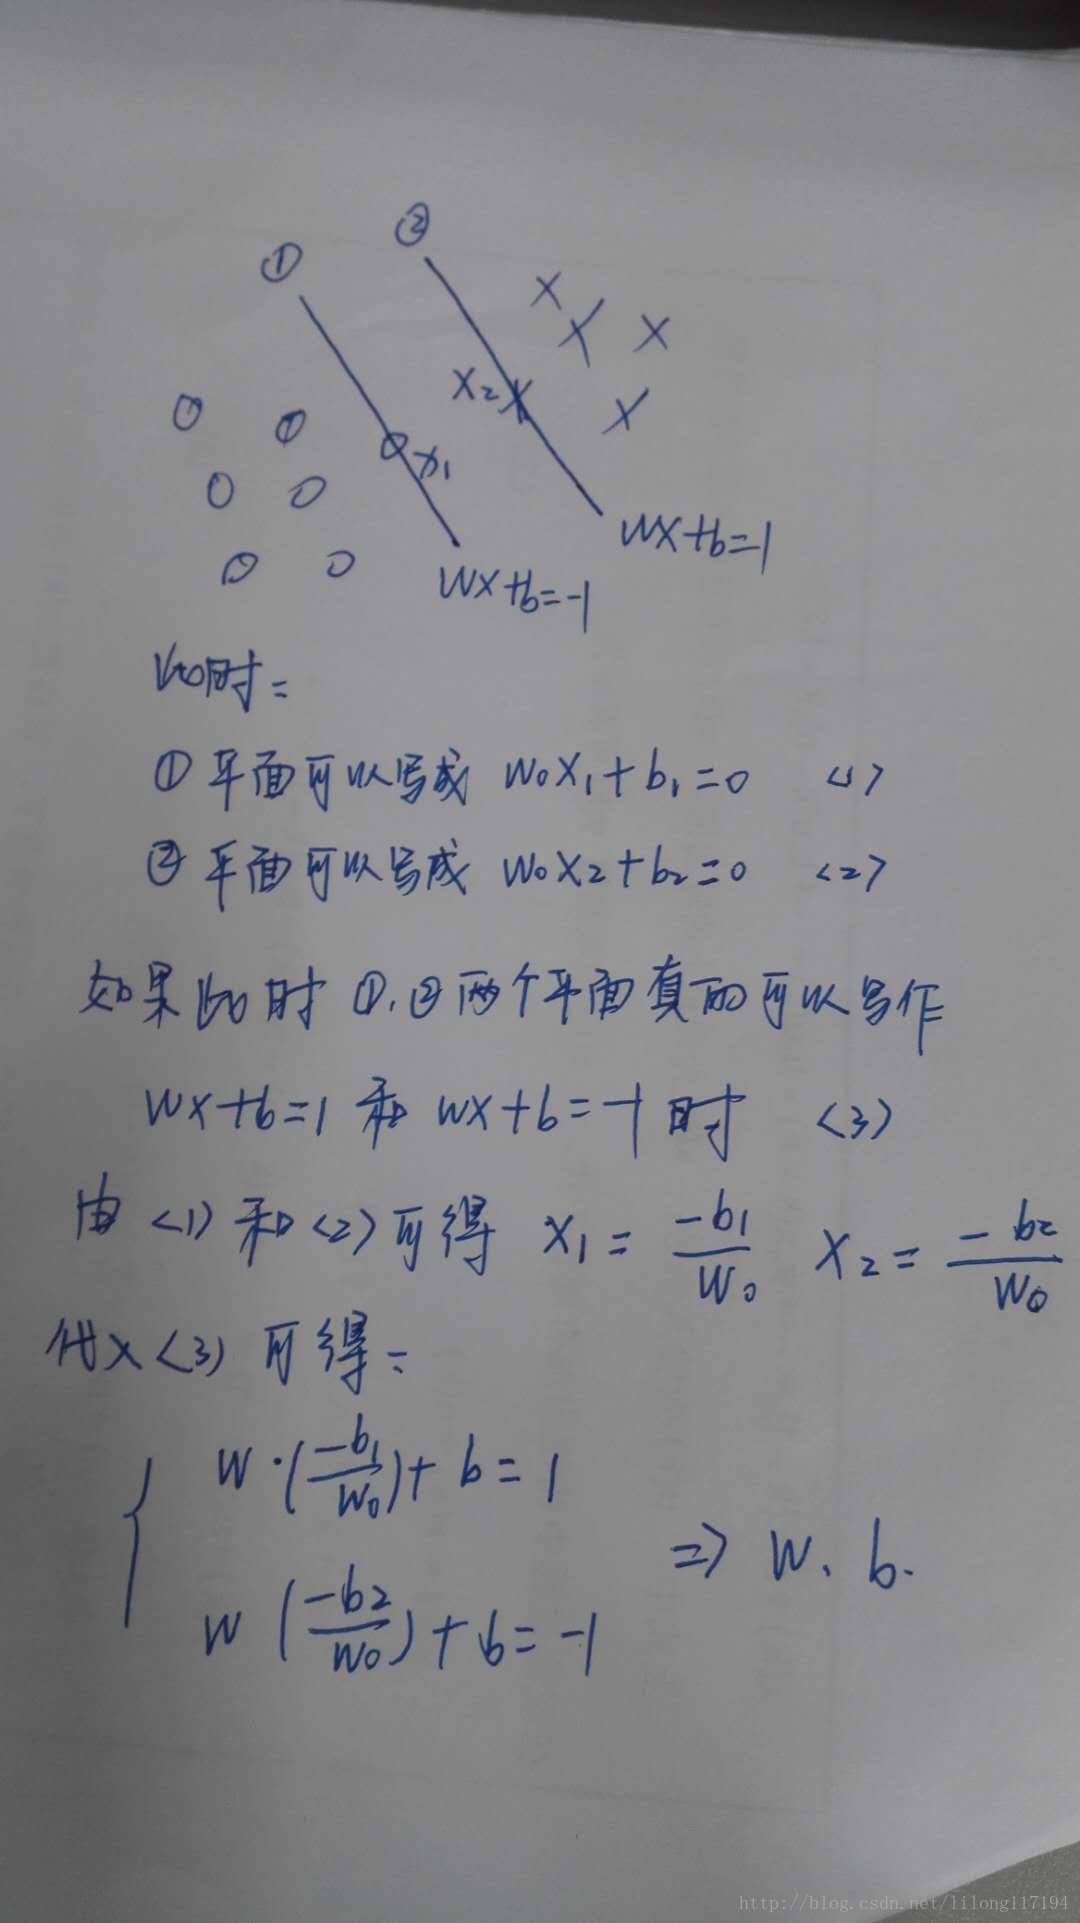 ① ②
X₂
x₁
wx+b=1
wx+b=-1
此时:
① 平面可以写成 w₀x₁+b₁=0 <1>
② 平面可以写成 w₀x₂+b₂=0 <2>
如果此时 ①、②两个平面真的可以写作
wx+b=1 和 wx+b=-1 时 <3>
由<1>和<2>可得 x₁ = -b₁/w₀ x₂ = -b₂/w₀
代入<3>可得:
w·(-b₁/w₀)+b=1
⇒ w、b.
w(-b₂/w₀)+b=-1
http://blog.csdn.net/lilong117194